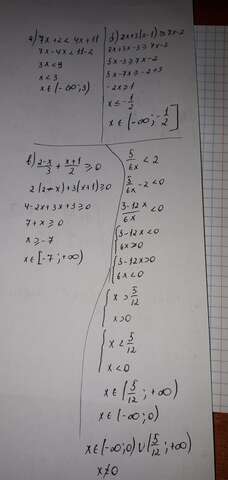 а) 7x+2<4x+11
7x-4x<11-2
3x<9
x<3
x∈(-∞;3)
б) 2x+3(x-1)≥7x-2
2x+3x-3≥7x-2
5x-3≥7x-2
5x-7x≥-2+3
-2x≥1
x≤-1/2
x∈(-∞;-1/2]
в) (2-x)/3 + (x+1)/2 ≥0
2(2-x)+3(x+1)≥0
4-2x+3x+3≥0
7+x≥0
x≥-7
x∈[-7;+∞)
5/6x <2
5/6x -2<0
(5-12x)/6x <0
{5-12x<0
6x>0
{5-12x>0
6x<0
{x>5/12
x>0
{x<5/12
x<0
x∈(5/12;+∞)
x∈(-∞;0)
x∈(-∞;0)∪(5/12;+∞)
x≠0